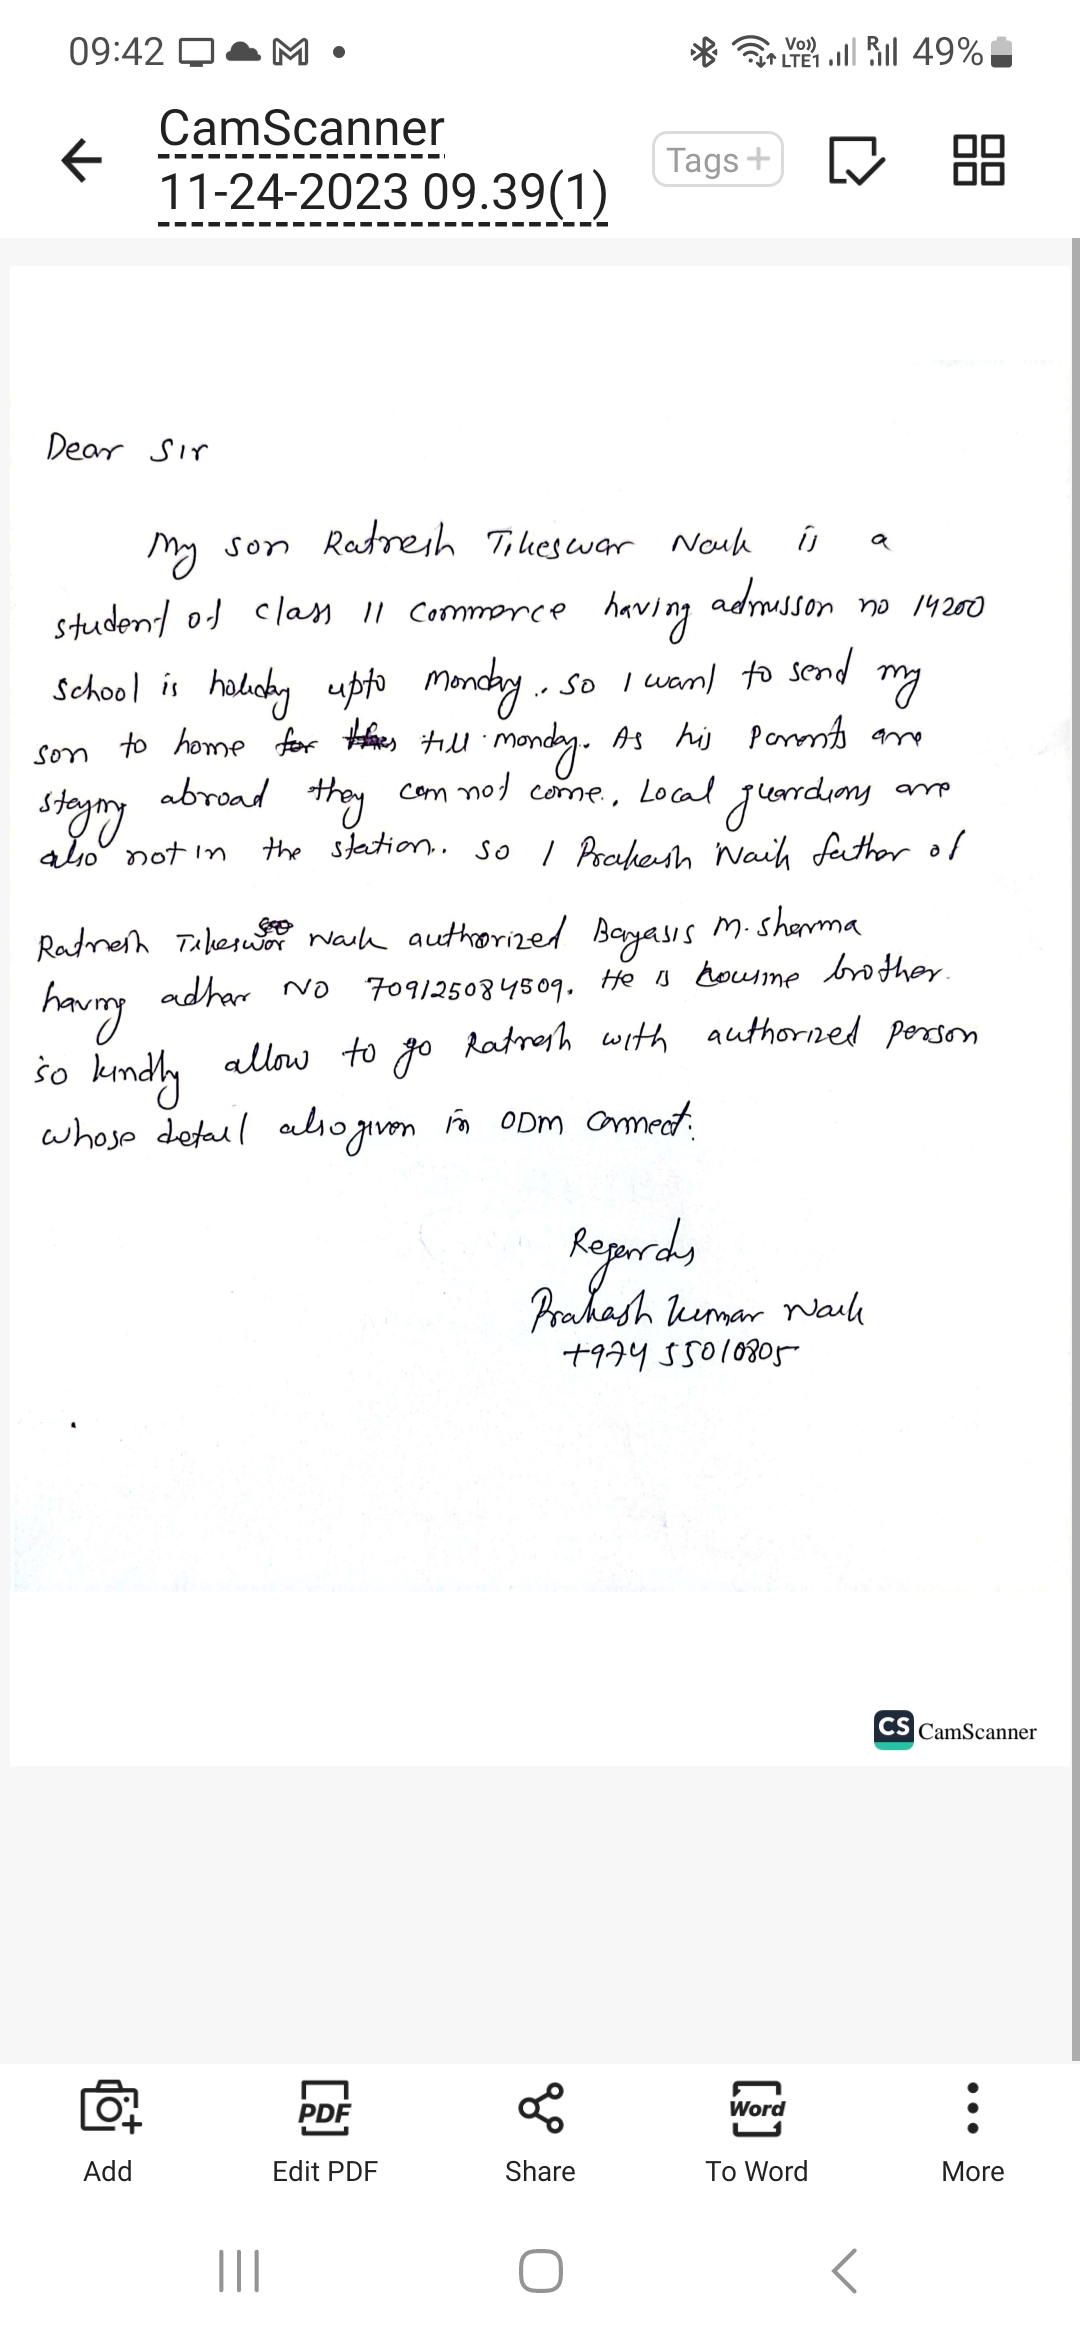 09:42
Vo)) LTE1 R 49%
CamScanner
11-24-2023 09.39(1)
Tags +
Dear Sir
My son Ratnesh Tikeswar Naik is a
student of class 11 commerce having admisson no 14200
School is holiday upto Monday.. so I want to send my
son to home for till monday. As his Parents are
staying abroad they can not come. Local guardians are
also not in the station.. so I Prakash Naik father of
Ratnesh Tikeswar Naik authorized Bayasis M. Sharma
having adhar NO 709125084509. He is cousine brother.
so kindly allow to go Ratnesh with authorized person
whose detail also given in ODM connect.
Regards
Prakash Kumar Naik
+974 55010805
CS CamScanner
Add
PDF
Edit PDF
Share
Word
To Word
More